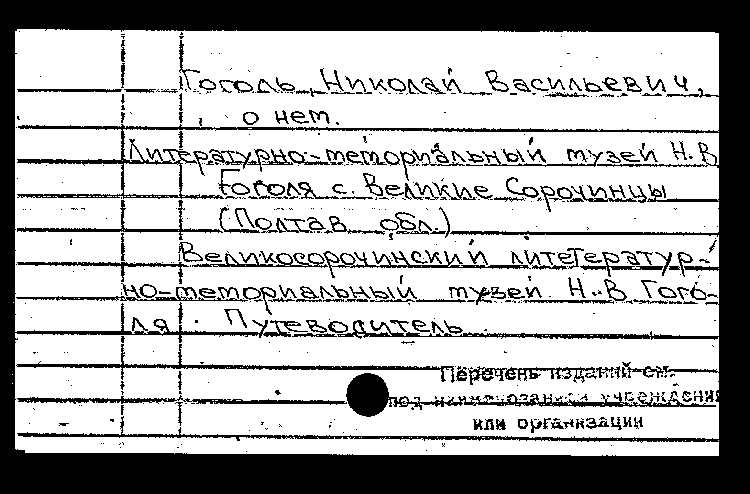 Гоголь, Николай Васильевич,
о нем.
Литературно-мемориальный музей Н.В
Гоголя с. Великие Сорочинцы
(Полтав обл.)
Великосорочинский литетератур-
но-мемориальный музей Н.В Гого-
ля. Путеводитель
Перечень изданий см.
под наименованием учреждения
или организации